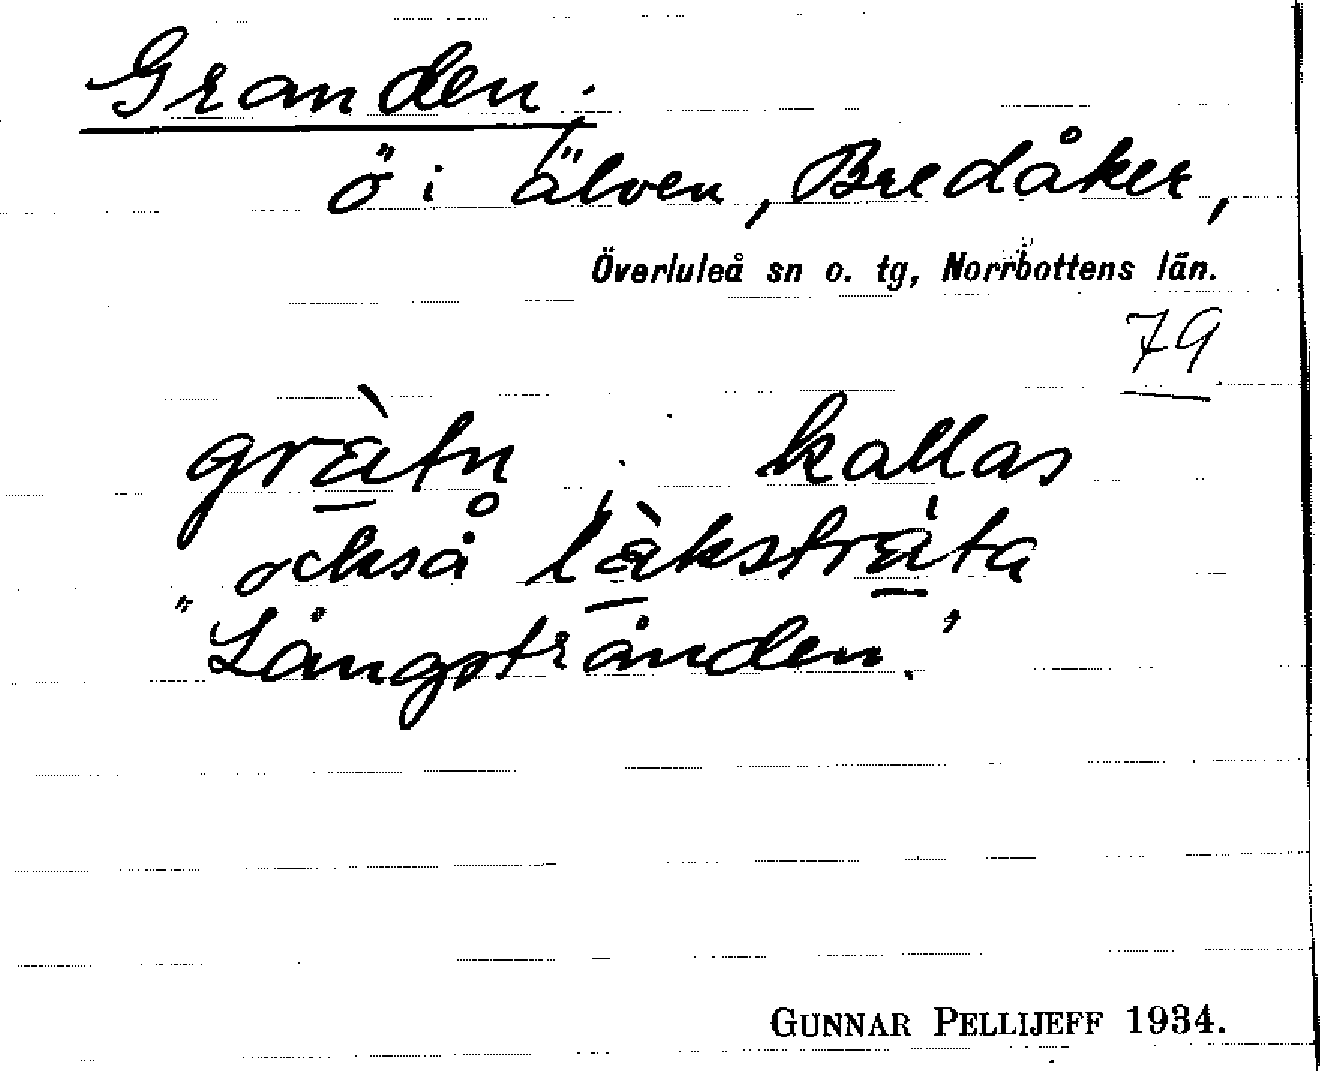 Granden.
ö i älven, Bredåker,
Överluleå sn o. tg, Norrbottens län.
79
gràtn̥ kallas
också làkstráta
"Långstranden."
GUNNAR PELLIJEFF 1934.